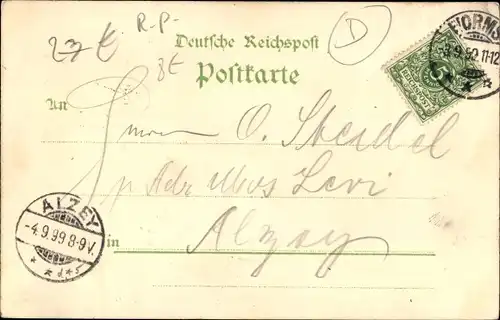 23 € R-P- D
8€
Deutsche Reichspost
Postkarte
WORMS
-3.9.92 11-12
REICHSPOST
An
Herrn O. Steidel
p Adr Levi
in Alzey
ALZEY
-4.9.99 8-9V.